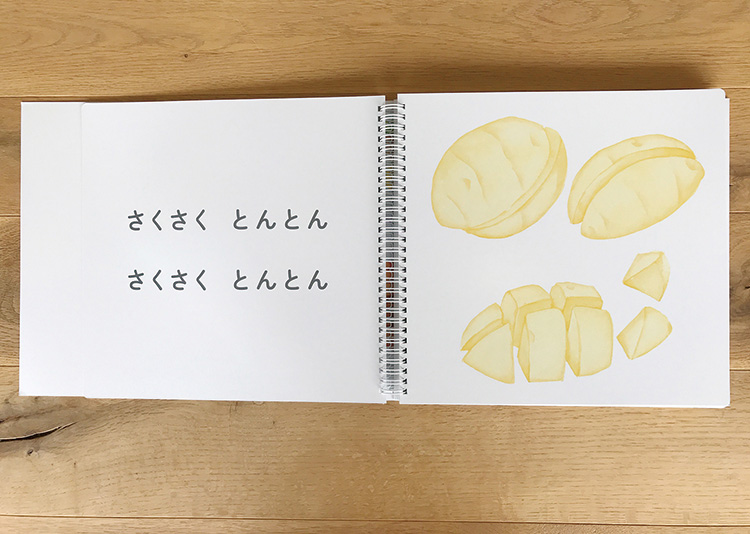 さくさく とんとん
さくさく とんとん